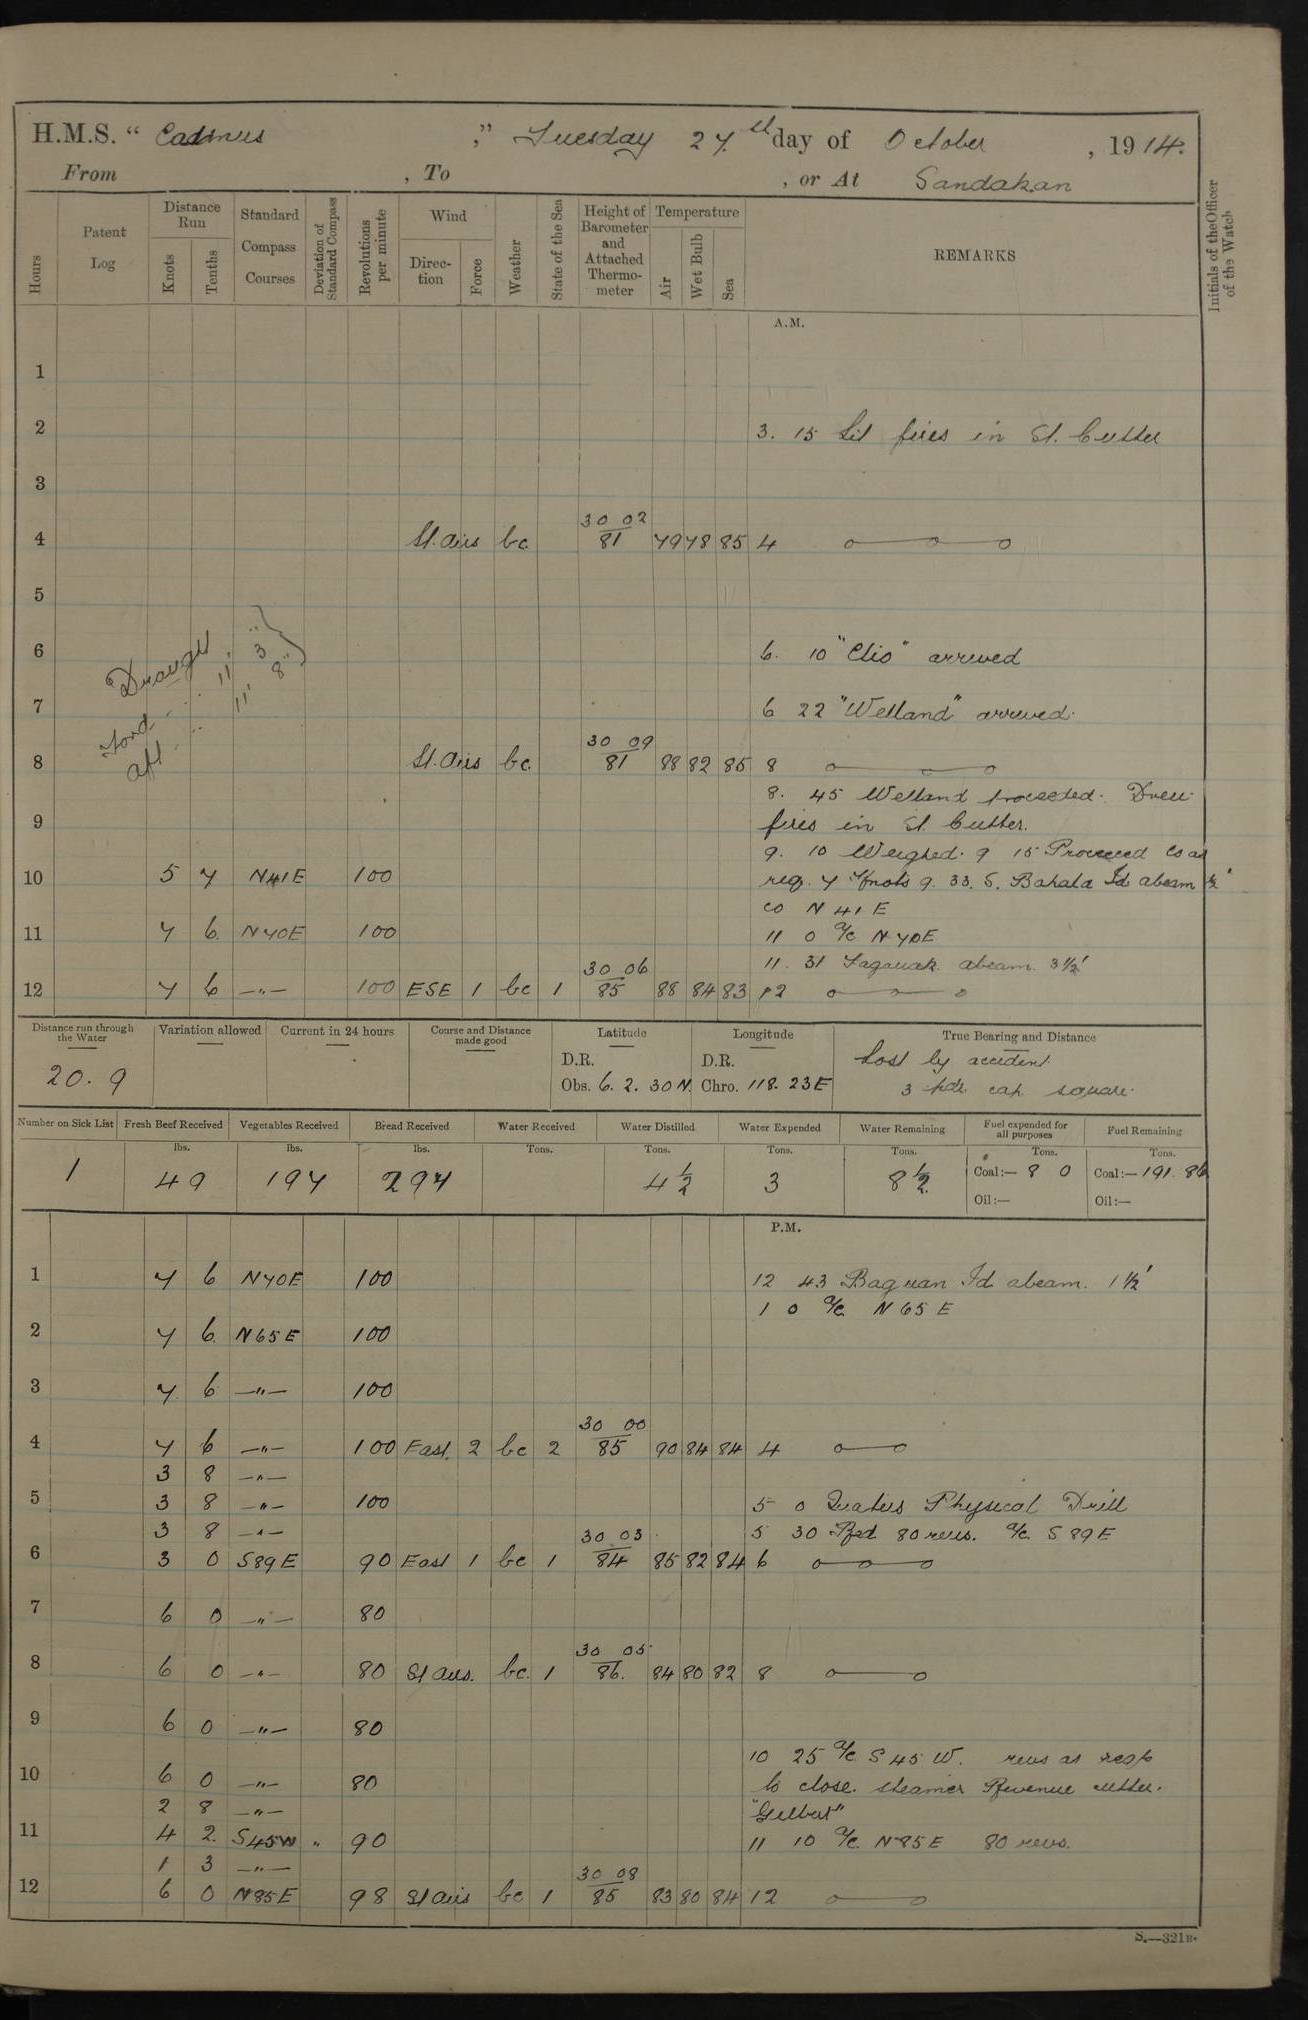 H.M.S. “ Cadmus ” Tuesday 27th day of October , 1914.
From , To , or At Sandakan
Hours
Patent Log
Distance Run
Knots
Tenths
Standard Compass Courses
Deviation of Standard Compass
Revolutions per minute
Wind
Direction
Force
Weather
State of the Sea
Height of Barometer and Attached Thermometer
Temperature
Air
Wet Bulb
Sea
REMARKS
Initials of the Officer of the Watch
A.M.
1
2 3. 15 Lit fires in St. Cutter
3
4 Lt. airs bc 30 02 / 81 79 78 85 4
5
Draught
Ford ... 11' 3"
Aft ... 11' 8"
6 6. 10 "Clio" arrived
7 6 22 "Welland" arrived.
8 Lt. airs bc. 30 09 / 81 88 82 85 8
8. 45 Welland proceeded. Drew
9 fires in St. Cutter.
9. 10 Weighed. 9 15 Proceeded Co as
10 5 7 N41E 100 req. 7 Knots 9. 33. S. Bahala Id abeam ½'
co N 41 E
11 7 6. N70E 100 11 0 a/c N70E
11. 31 Taganak abeam. 3½'
12 7 6 —"— 100 ESE 1 bc 1 30 06 / 85 88 84 83 12
Distance run through the Water
Variation allowed
Current in 24 hours
Course and Distance made good
Latitude
Longitude
True Bearing and Distance
20. 9
D.R.
Obs. 6. 2. 30 N.
D.R.
Chro. 118. 23 E
Lost by accident
3 pdr. cap square.
Number on Sick List
Fresh Beef Received
Vegetables Received
Bread Received
Water Received
Water Distilled
Water Expended
Water Remaining
Fuel expended for all purposes
Fuel Remaining
lbs. lbs. lbs. Tons. Tons. Tons. Tons. Tons. Tons.
1 49 197 297 4½ 3 8½ Coal:— 8 0 Coal:— 191. 86
Oil:— Oil:—
P.M.
1 7 6 N70E 100 12 43 Baguan Id abeam. 1½'
1 0 a/c N 65 E
2 7 6. N65E 100
3 7 6 —"— 100
4 7 6 —"— 100 East. 2 bc 2 30 00 / 85 90 84 84 4
3 8 —"—
5 3 8 —"— 100 5 0 Quarters Physical Drill
3 8 —"— 5 30 Red 80 revs. a/c S 89 E
6 3 0 S89E 90 East 1 bc 1 30 03 / 84 85 82 84 6
7 6 0 —"— 80
8 6 0 —"— 80 Lt airs. bc. 1 30 05 / 86. 84 80 82 8
9 6 0 —"— 80
10 25 a/c S 45 W. revs as req
10 6 0 —"— 80 to close. steamer Revenue cutter.
2 8 —"— "Gilbert"
11 4 2. S45W " 90 11 10 a/c N85E 80 revs.
1 3 —"—
12 6 0 N85E 98 Lt airs bc 1 30 08 / 85 83 80 84 12
S.—321B.